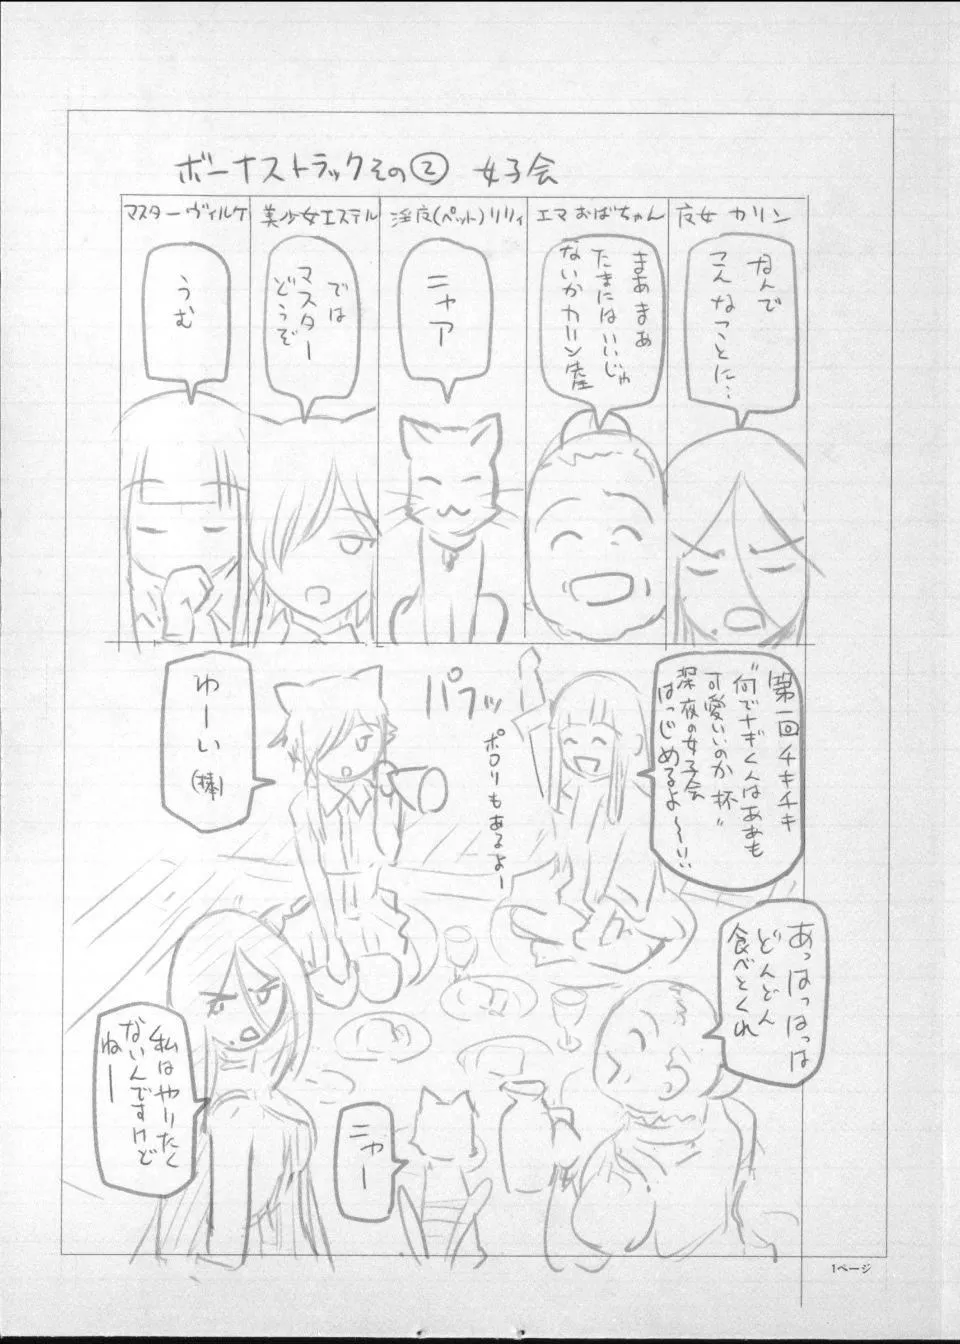 ボーナストラックその② 女子会
皮女 カリン
なんで
こんなことに…
エマおばちゃん
まあまあ
たまにはいいじゃ
ないかカリン産
淫皮(ペット)リリィ
ニャア
美少女エステル
では
マスター
どうぞ
マスターヴィルケ
うむ
第一回チキチキ
"何でナギくんはああも
可愛いいのか 杯"
深夜の女子会
はっじめるよ〜〜!!
パフッ
ポロリもあるよー
ゆーい
(棒)
あっはっはっは
どんどん
食べとくれ
私はやりたく
ないんですけど
ねー
ニャー
1ページ